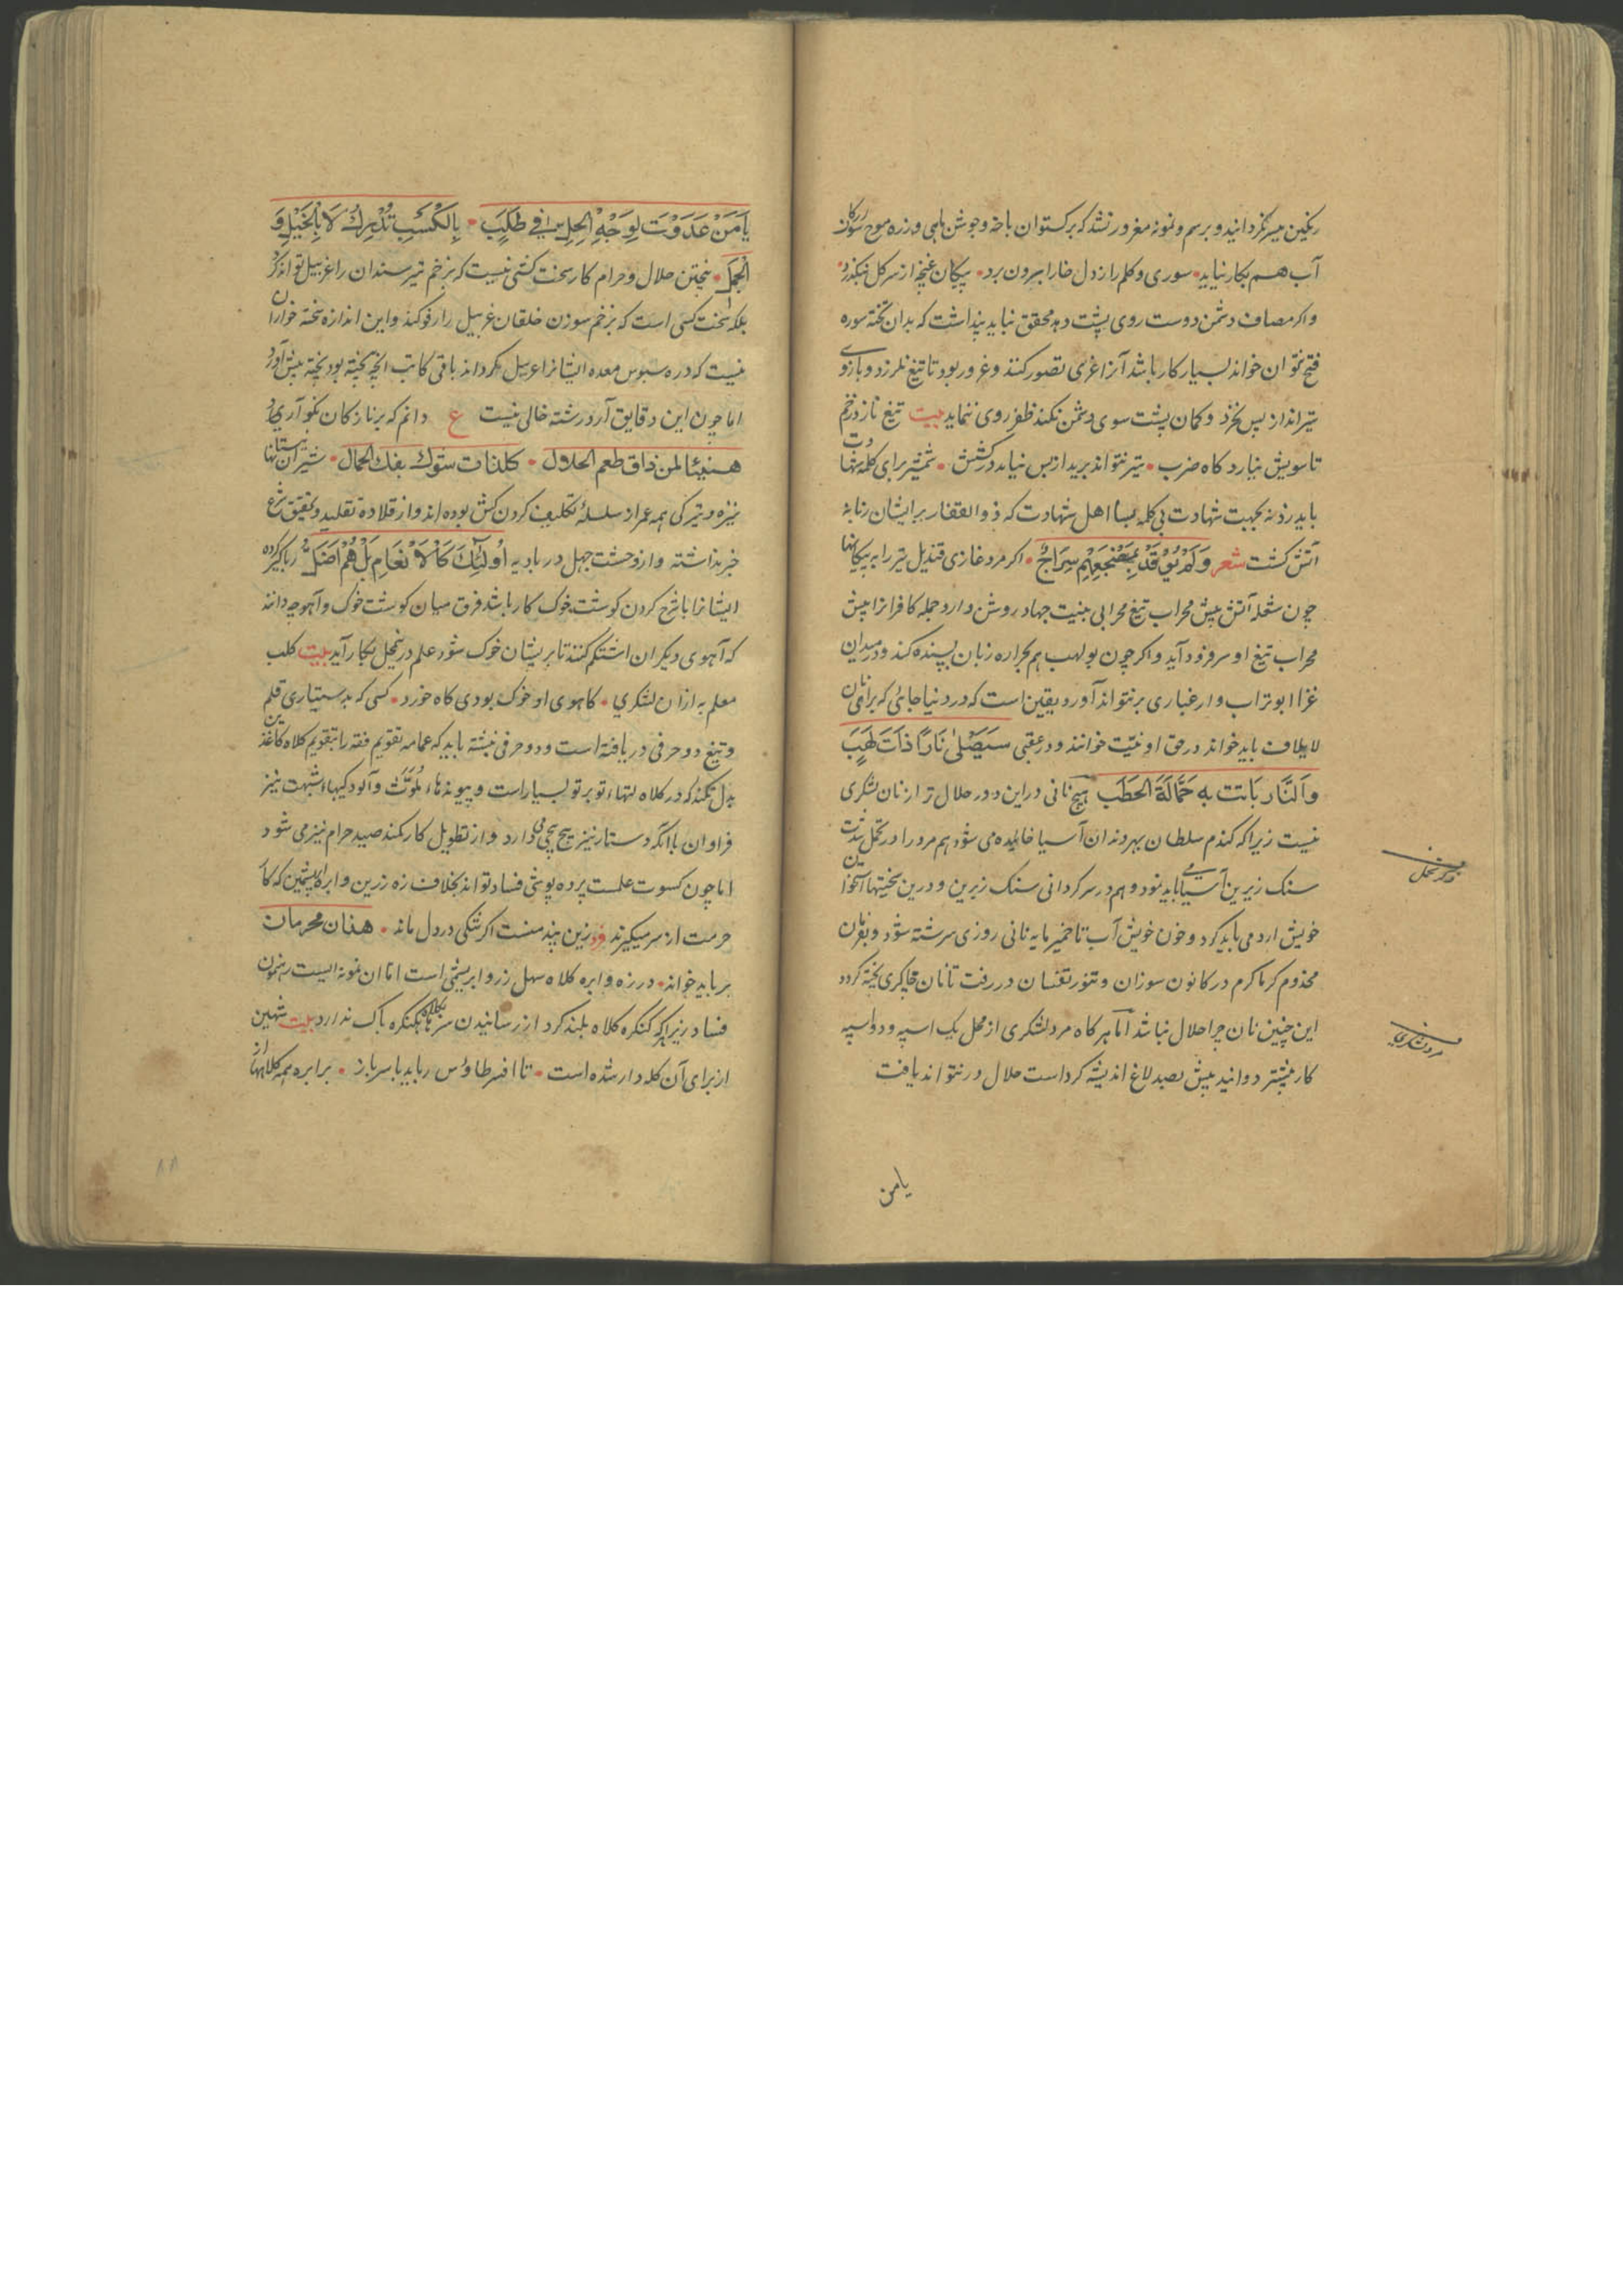 رنگین میسر نگردانید و برسم و نمونه مغرور نشد که برکستوان باخه و جوشن ماهی و زره موج
آب هم بکار نیاید سوری و کلم را زدل خارا بیرون برد پیکان غنچه از سر کل نبگذرد
و اکر مصاف دشمن دوست روی پشت دهد محقق نباید پنداشت که بدان تخته سوره
فتح نتوان خواند بسیار کار باشد آنرا غزی تصور کنند و غرور بود تا تیغ نلرزد و بازو
تیرانداز پس نخزد و کمان پشت سوی دشمن نکند ظفر روی ننماید بیت تیغ نازد زخم
تا سویش نیارد کاه ضرب تیر نتواند برید از بس نیاید در کشش شمشیر برای کلمه
باید زد نه بجهت شهادت بی کلمه بسا اهل شهادت که ذوالفقار بر ایشان زبانه
آتش کشت شعر وَلَمْ یُوقَدْ بِمَضْجَعِهِمْ سِرَاجٌ اکر مرد غازی قندیل تیر را به پیکانها
چون شعله آتش پیش محراب تیغ محرابی بنیت جهاد روشن دارد جمله کافران را پیش
محراب تیغ او سر فرود آید و اکر چون بولهب هم بحراره زبان بسنده کند و در میدان
غزا ابوتراب وار غباری بر نتواند آورد یقین است که در دنیا جائی که
لایلاف باید خواند در حق او تبّت خوانند و در عقبی سَیَصْلٰی نَارًا ذَاتَ لَهَبٍ
وَالنَّار بَاتت به حَمَّالَةَ الحَطَب هیچ نانی در این دور حلال تر از نان لشکری
نیست زیرا که کندم سلطان بهر دندان آسیا خائیده می شود هم مرد را در تحمل
سنک زیرین آسیا می باید بود و هم در سر کردانی سنک زبرین و درین سختیها
خویش ارد می باید کرد و خون خویش آب تا خمیر مایه نانی روزی سرشته شود و بفرمان
مخدوم کرما کرم در کانون سوزان و تنور تفسان در رفت تا نان چاکری پخته کردد
این چنین نان چرا حلال نباشد اما هر کاه مرد لشکری از محل یک اسپه و دو اسپه
کار بیشتر دوانید بیش بصد لاغ اندیشه کرد است حلال در نتواند یافت
یامن
یَامَنْ عَدَوْتَ لِوَجْهِ الحِلِّ فِی طَلَبٍ بِالکَسْبِ تُدْرِكُ لَا بِالخَیْلِ وَ
الجَمَلِ پختن حلال و حرام کار سخت کشی نیست که بزخم تیر سندان را غربیل تواند کرد
بلکه سخت کسی است که بزخم سوزن خلقان غربیل را رفو کند و این اندازه پخته خواران
نیست که دره سبوس معده ایشان را غربیل نکرداند باقی کاتب انچه پخته بود پخته پیش آورد
اما چون این دقایق آرد رشته خالی نیست ع دانم که بر نازکان نکو آری
هنیئا لمن ذاق طعم الحلال شیران نیستانها
نیزه و تیر کی همه عمر از سلسلهٔ تکلیف کردن کش بوده اند و از قلادهٔ تقلید و تحقیق شرع
خبر نداشته و از وحشت جهل در بادیه اُولٰئِكَ کَالْاَنْعَامِ بَلْ هُمْ اَضَلُّ رها کرده
ایشانرا با شرح کردن کوشت خوک کار باشد فرق میان کوشت خوک و آهو چه دانند
که آهوی دیکران اشتلم کنند تا بریشان خوک شود علم درین محل بکار آید بیت کلب
معلم به از آن لشکری کاهوی او خوک بودی کاه خورد کسی که بدستیاری قلم
و تیغ دو حرفی دریافته است و دو حرفی نبشته باید که عمامه تقویم فقه را بتقویم کلاه کاغذین
بدل نکند که در کلاه لتهاء تو بر تو بسیار است و پیوندهاء مُلَوَّث و آلودکیهاء شبهت نیز
فراوان با آنکه دستار نیز پیچ پیچی دارد و از تطویل کار بکند صید حرام نیز می شود
اما چون کسوت علمست پرده پوشی فساد تواند بخلاف زه زرین و ابره ابریشمین که کا
حرمت از سر میکیرند زین پند منت اکر تنکی در دل ماند هذان محرمان
بر باید خواند در زه و ابره کلاه سهل زر و ابریشمی است اما ان نمونه ایست رهنمون
فساد زیرا هر که کنکره کلاه بلند کرد از رسانیدن سر بکنکره باک ندارد بیت شهین
از برای آن کله دار شده است تا افسر طاوس رباید با سر باز برابره همه کلاهها
مرد لشکری